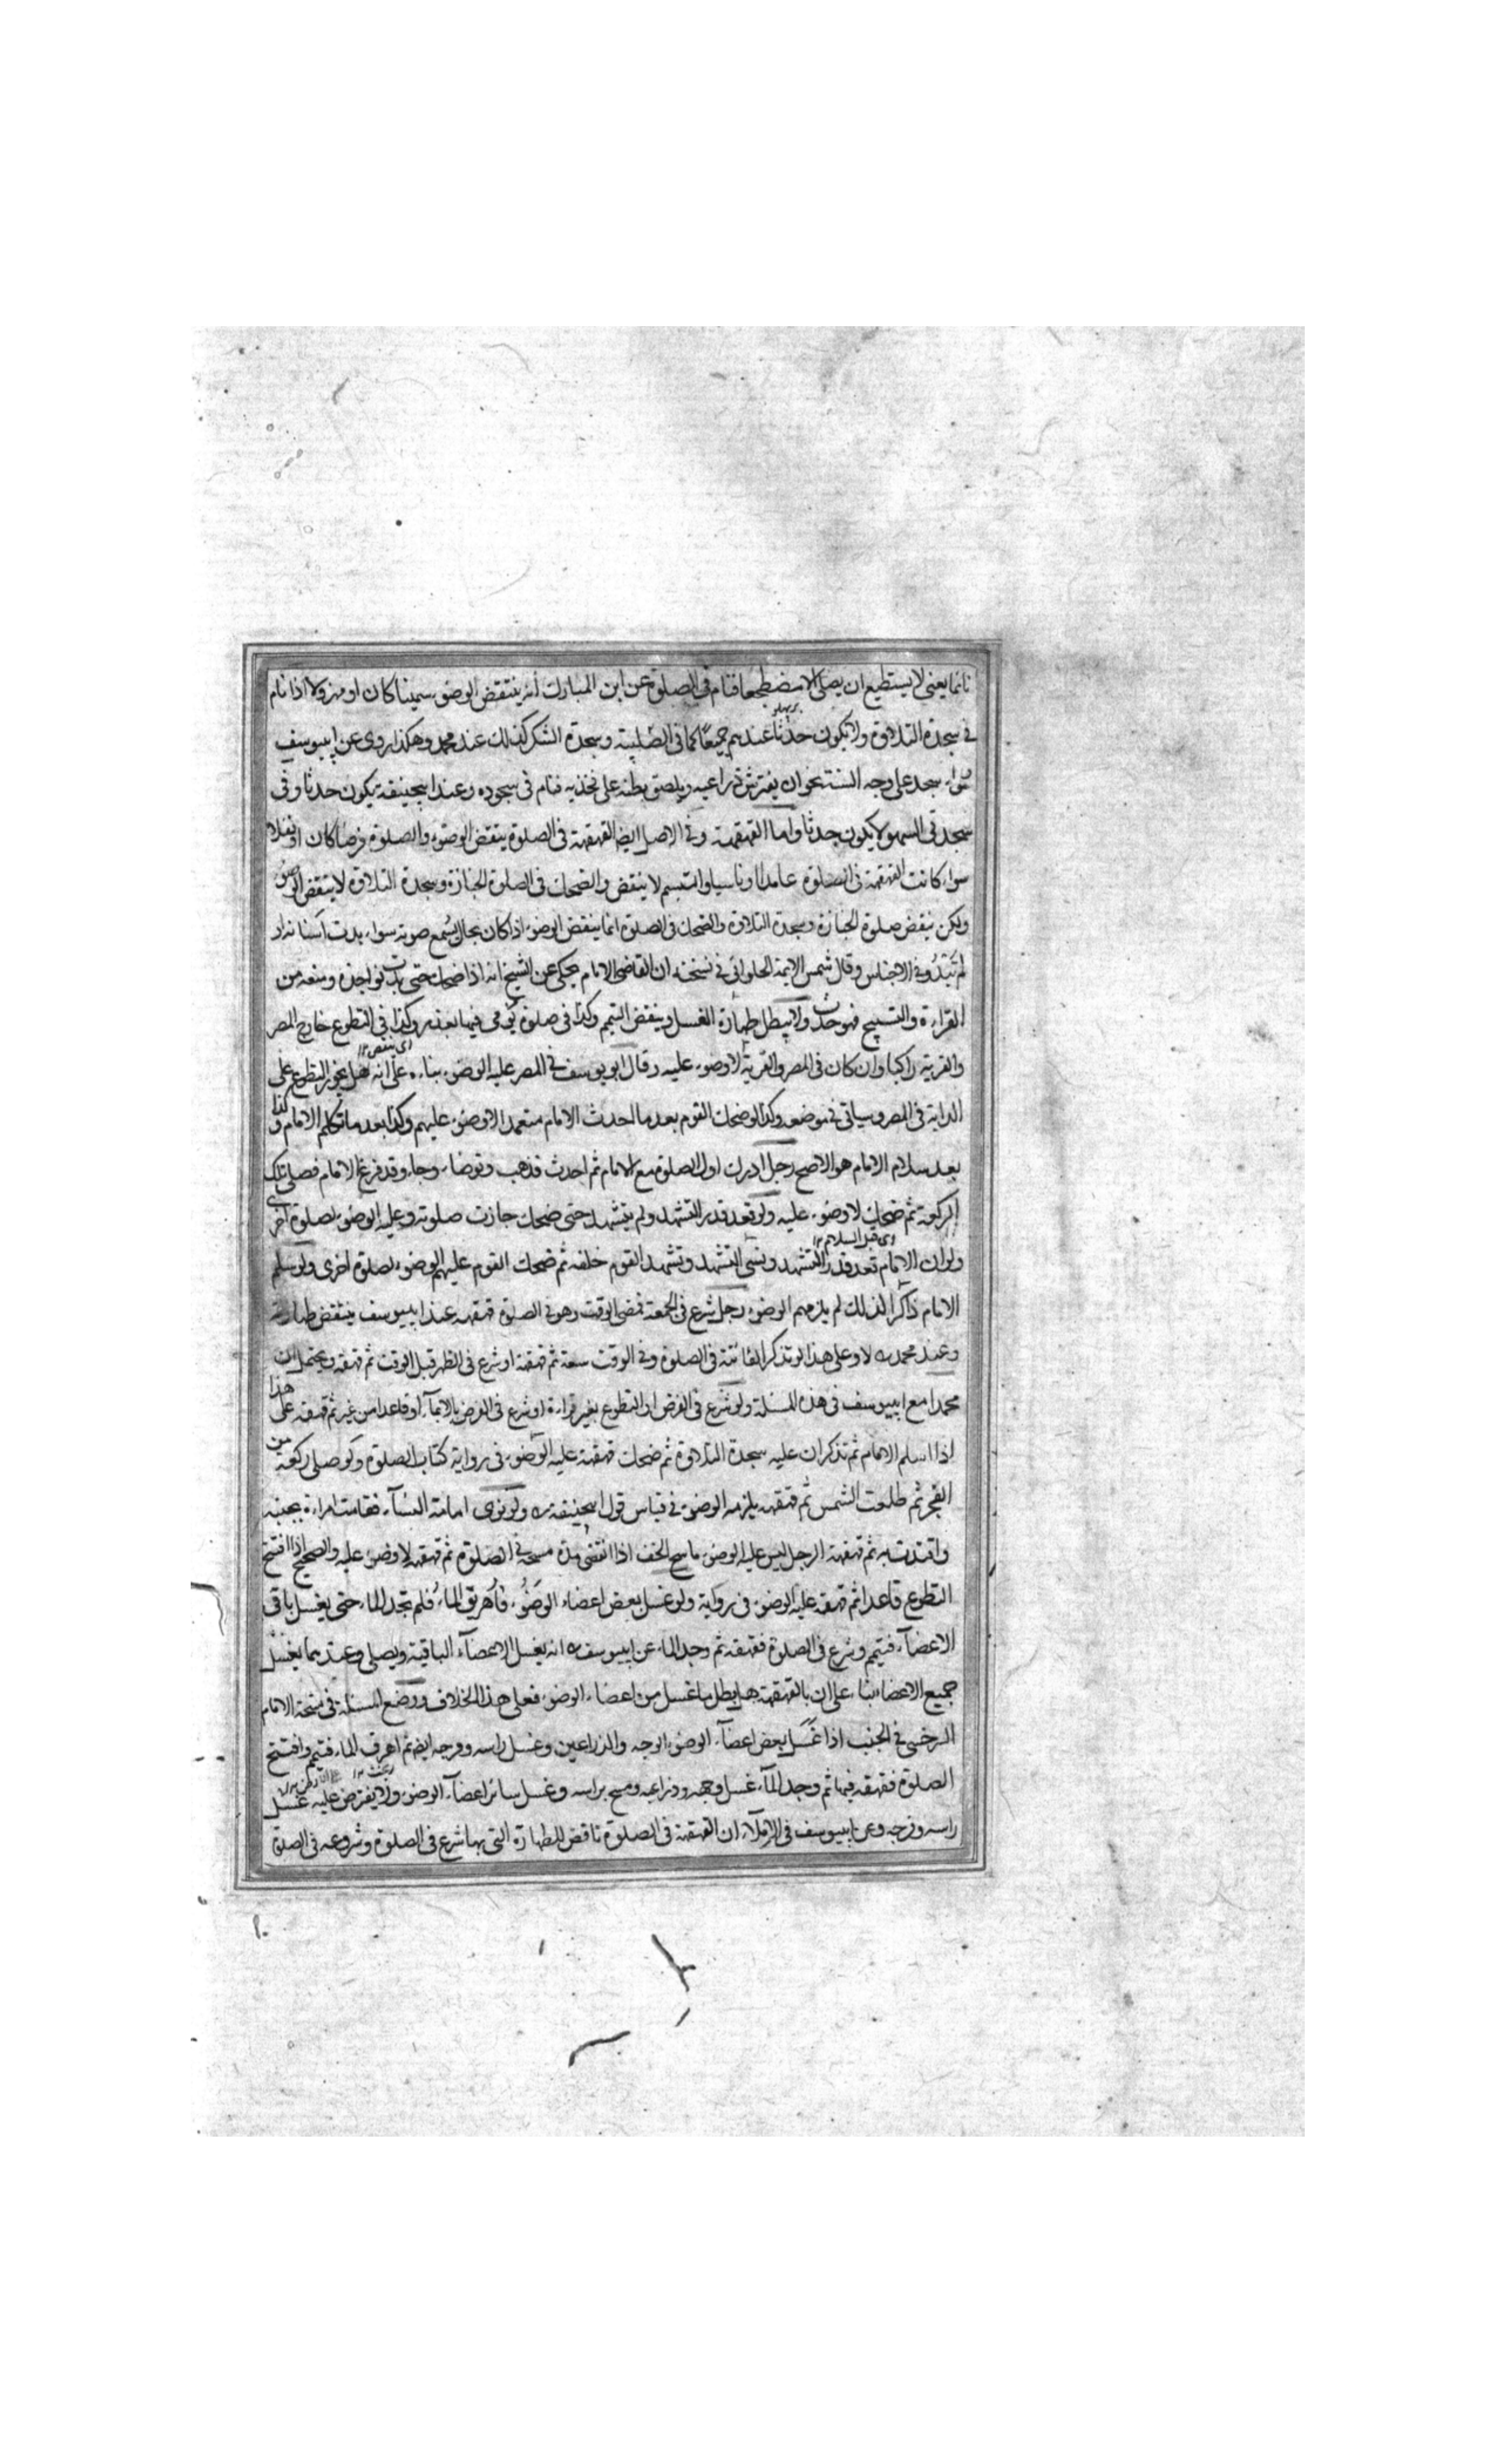 نائما يعنى لا يستطيع ان يصلى الا مضطجعا فنام فى الصلوة عن ابن المبارك انه ينتقض الوضوء سمينا كان او مهزولا اذا نام
فى سجدة التلاوة ولا يكون حدثا عندهم جميعا كما فى الصلبية وسجدة الشكر كذلك عند محمد وهكذا روى عن ابيوسف
سواء سجد على وجه السنة نحو ان يفترش ذراعيه ويلصق بطنه على فخذيه فنام فى سجوده وعند ابيحنيفة يكون حدثا وفى
سجدتى السهو لا يكون حدثا واما القهقهة وفى الاصل ايضا القهقهة فى الصلوة ينقض الوضوء والصلوة فرضا كان او نفلا
سواء كانت القهقهة فى الصلوة عامدا او ناسيا والتبسم لا ينقض والضحك فى الصلوة الجنازة وسجدة التلاوة لا ينقض الوضوء
ولكن ينقض صلوة الجنازة وسجدة التلاوة والضحك فى الصلوة انما ينقض الوضوء اذا كان بحال يسمع صوته سواء بدت اسنانه او
لم تبدو فى الاجناس وقال شمس الايمة الحلوائى فى نسخته ان القاضى الامام يحكى عن الشيخ انه اذا ضحك حتى بدت نواجذه ومنعه من
القراءة والتسبيح فهو حدث ولا يبطل طهارة الغسل وينقض التيمم وكذا فى صلوة يومى فيها بعذر وكذا فى التطوع خارج المصر
والقرية راكبا وان كان فى المصر والقرية لا وضوء عليه وقال ابو يوسف فى المصر عليه الوضوء بناء على انه هل يجوز التطوع على
الدابة فى المصر وسياتى فى موضعه وكذا لو ضحك القوم بعد ما احدث الامام متعمدا لا وضوء عليهم وكذا بعد ما تكلم الامام وكذا
بعد سلام الامام هو الاصح رجل ادرك اول الصلوة مع الامام ثم احدث فذهب وتوضاء وجاء وقد فرغ الامام فصلى تلك
الركعة ثم ضحك لا وضوء عليه ولو قعد قدر التشهد ولم يتشهد حتى ضحك جازت صلوته وعليه الوضوء لصلوة اخرى
ولو ان الامام قعد قدر التشهد ونسى التشهد وتشهد القوم خلفه ثم ضحك القوم عليهم الوضوء لصلوة اخرى ولو سلم
الامام ذاكرا لذلك لم يلزمهم الوضوء رجل شرع فى الجمعة فمضى الوقت وهو فى الصلوة قهقهه عند ابيوسف ينتقض طهارته
وعند محمد ره لا وعلى هذا لو تذكر الفائتة فى الصلوة وفى الوقت سعة ثم قهقهه او شرع فى الظهر قبل الوقت ثم قهقه ويحتمل ان
محمدا مع ابيوسف فى هذه المسئلة ولو شرع فى الفرض او التطوع بغير قراءة او شرع فى الفرض بالايماء او قاعدا من غير ثم قهقه على هذا
اذا سلم الامام ثم تذكر ان عليه سجدة التلاوة ثم ضحك قهقهة عليه الوضوء فى رواية كتاب الصلوة ولو صلى ركعة من
الفجر ثم طلعت الشمس ثم قهقهه يلزمه الوضوء فى قياس قول ابيحنيفة ره ولو نوى امامة النساء فقامت امراءة بجنبه
واقتدت به ثم قهقهة الرجل ليس عليه الوضوء ماسح الخف اذا انقضى مدة مسحه فى الصلوة ثم قهقهه لا وضوء عليه والصحيح اذا افتتح
التطوع قاعدا ثم قهقه عليه الوضوء فى رواية ولو غسل بعض اعضاء الوضوء فاهريق الماء فلم تجد الماء حتى يغسل باقى
الاعضاء فتيمم وشرع فى الصلوة فقهقه ثم وجد الماء عن ابيوسف ره انه يغسل الاعضاء الباقية ويصلى وعندهما يغسل
جميع الاعضاء بناء على ان بالقهقهة هل يبطل ما غسل من اعضاء الوضوء فعلى هذا الخلاف ووضع المسئلة فى نسخة الامام
السرخسى فى الجنب اذا غسل بعض اعضاء الوضوء الوجه والذراعين وغسل راسه وفرجه ايضا ثم اهرق الماء فتيمم وافتتح
الصلوة فقهقه فيها ثم وجد الماء غسل وجهه وذراعيه ومسح براسه وغسل سائر اعضاء الوضوء ولا يفترض عليه غسل
راسه وفرجه وعن ابيوسف فى الاملاء ان القهقهة فى الصلوة ناقض للطهارة التى بها شرع فى الصلوة وشروعه فى الصلوة